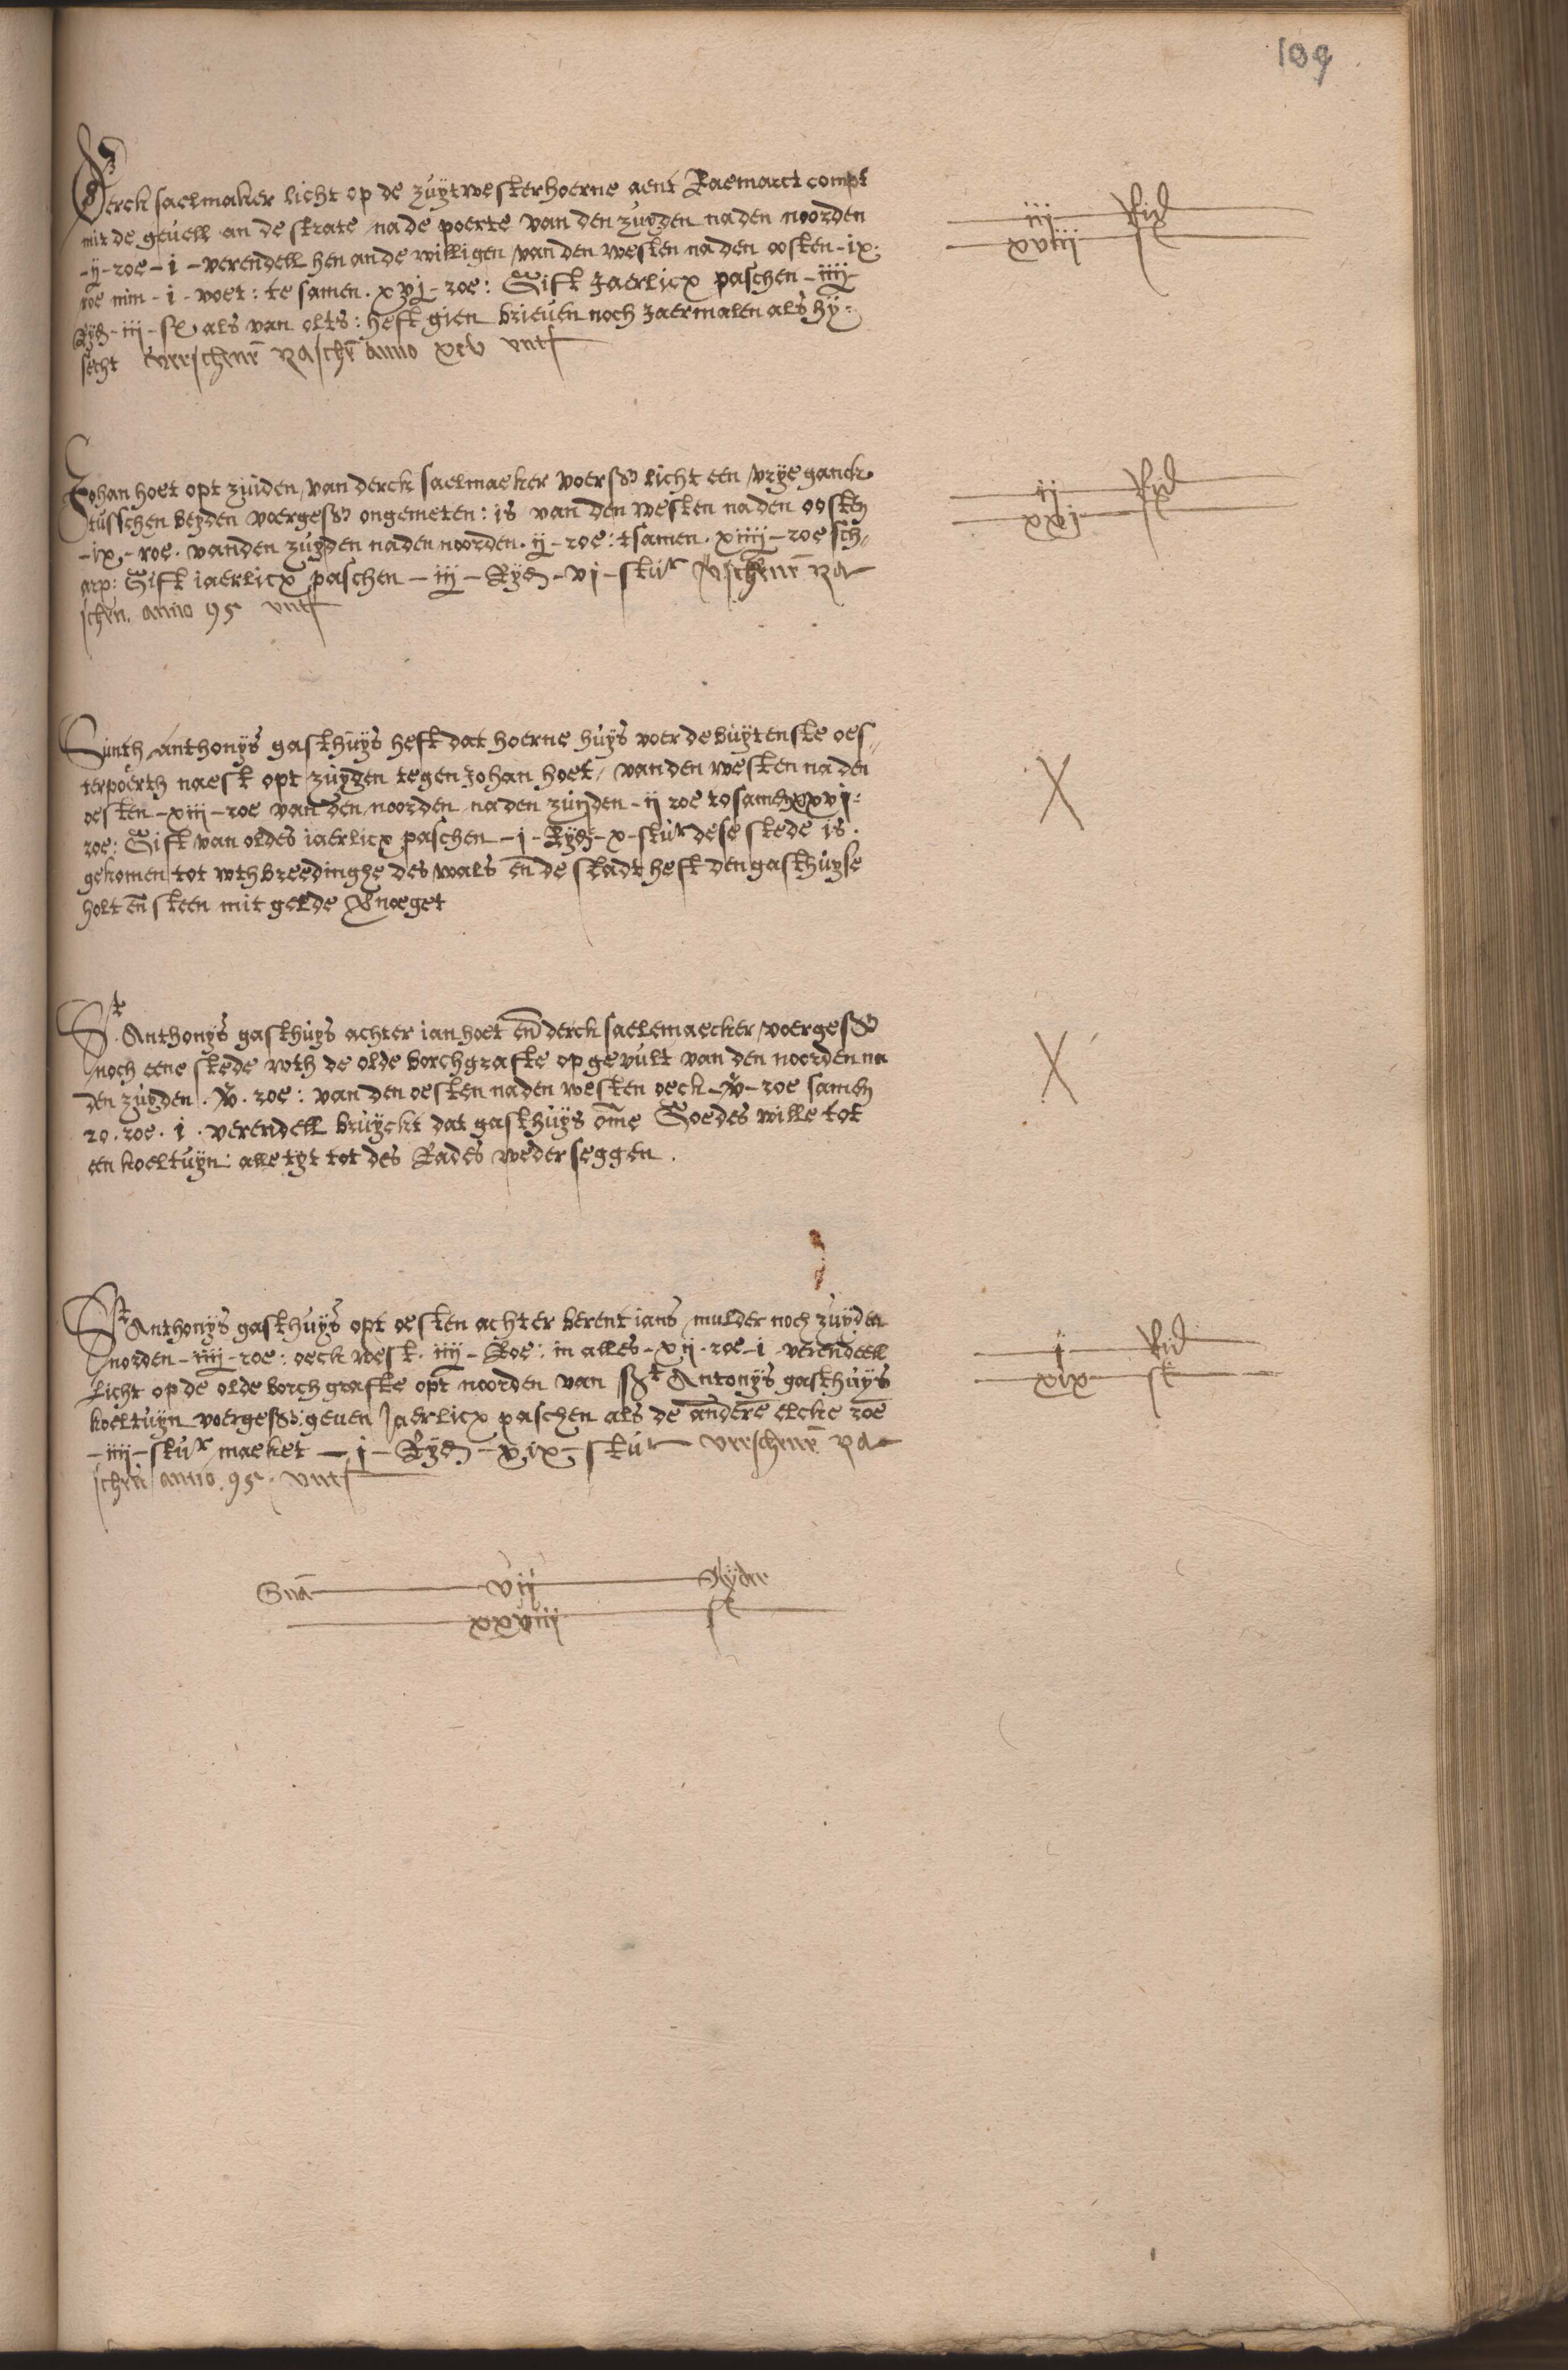 109
Derck saelmaker licht op de zuÿtwesterhoerne aent Raemarct compt
mit de geuell an de strate na de poerte van den zuyden na den noorden
-ij- roe - i - verendell hen an de willigen van den westen na den oosten - ix.
roe min - i - voet : te samen . xvj - roe : Gift Jaerlicx paschen - iiij -
Rÿd - iij - st als van olts : heft gien brieuen noch Jaermalen als hÿ :
secht verschenē paschē anno xcv
iij Rid
xviij st
Johan hoet opt zuiden van derck saelmaeker voers licht een vrÿe ganck
tusschen beyden voerges ongemeten : is van den westen na den oosten
- ix - roe . vanden zuyden na den noorden . ij - roe : tsamen . xiiij - roe sch//
arp : Gift iaerlicx paschen - iij - Rÿd - vi - stur verschenē pa
schen . anno 95
ij Rid
xxj st
Sunth Anthonÿs gasthuÿs heft dat hoerne huÿs voer de buÿtenste oes//
terpoerth naest opt zuyden tegen Johan hoet / van den westen na den
oesten - xiij - roe van den noorden na den zuyden - ij roe tosamen xxvj :
roe : Gift van oldes iaerlicx paschen - j - Rÿd - x - stur dese stede is .
gekomen tot wthbreedinghe des wals en de stadt heft den gasthuyse
holt en steen mit gelde vnoeget
X
St Anthonÿs gasthuÿs achter ian hoet en derck saelemaecker / voerges
noch eene stede wth de olde borchgrafte op gevult van den noorden na
den zuyden . v . roe : van den oesten na den westen oeck - v - roe samen
20 . roe . i . verendell bruÿckt dat gasthuÿs ome Goedes wille tot
een koeltuÿn : alle tÿt tot des Rades weder seggen .
X
St Anthonÿs gasthuÿs opt oesten achter berent ians mulder noch zuÿden
norden - iiij - roe : oeck west . iiij - Roe : in alles - xij - roe - i - verendeell
licht op de olde borch grafte opt noorden van St Antonÿs gasthuÿs
koeltuÿn voerges : geuen Jaerlicx paschen als de andere elcke roe
- iiij - stur maeket - j - Rÿd - xix - stur verschenē pa
schen anno . 95 .
j Rid
xix st
vij Rÿder
xxviij st